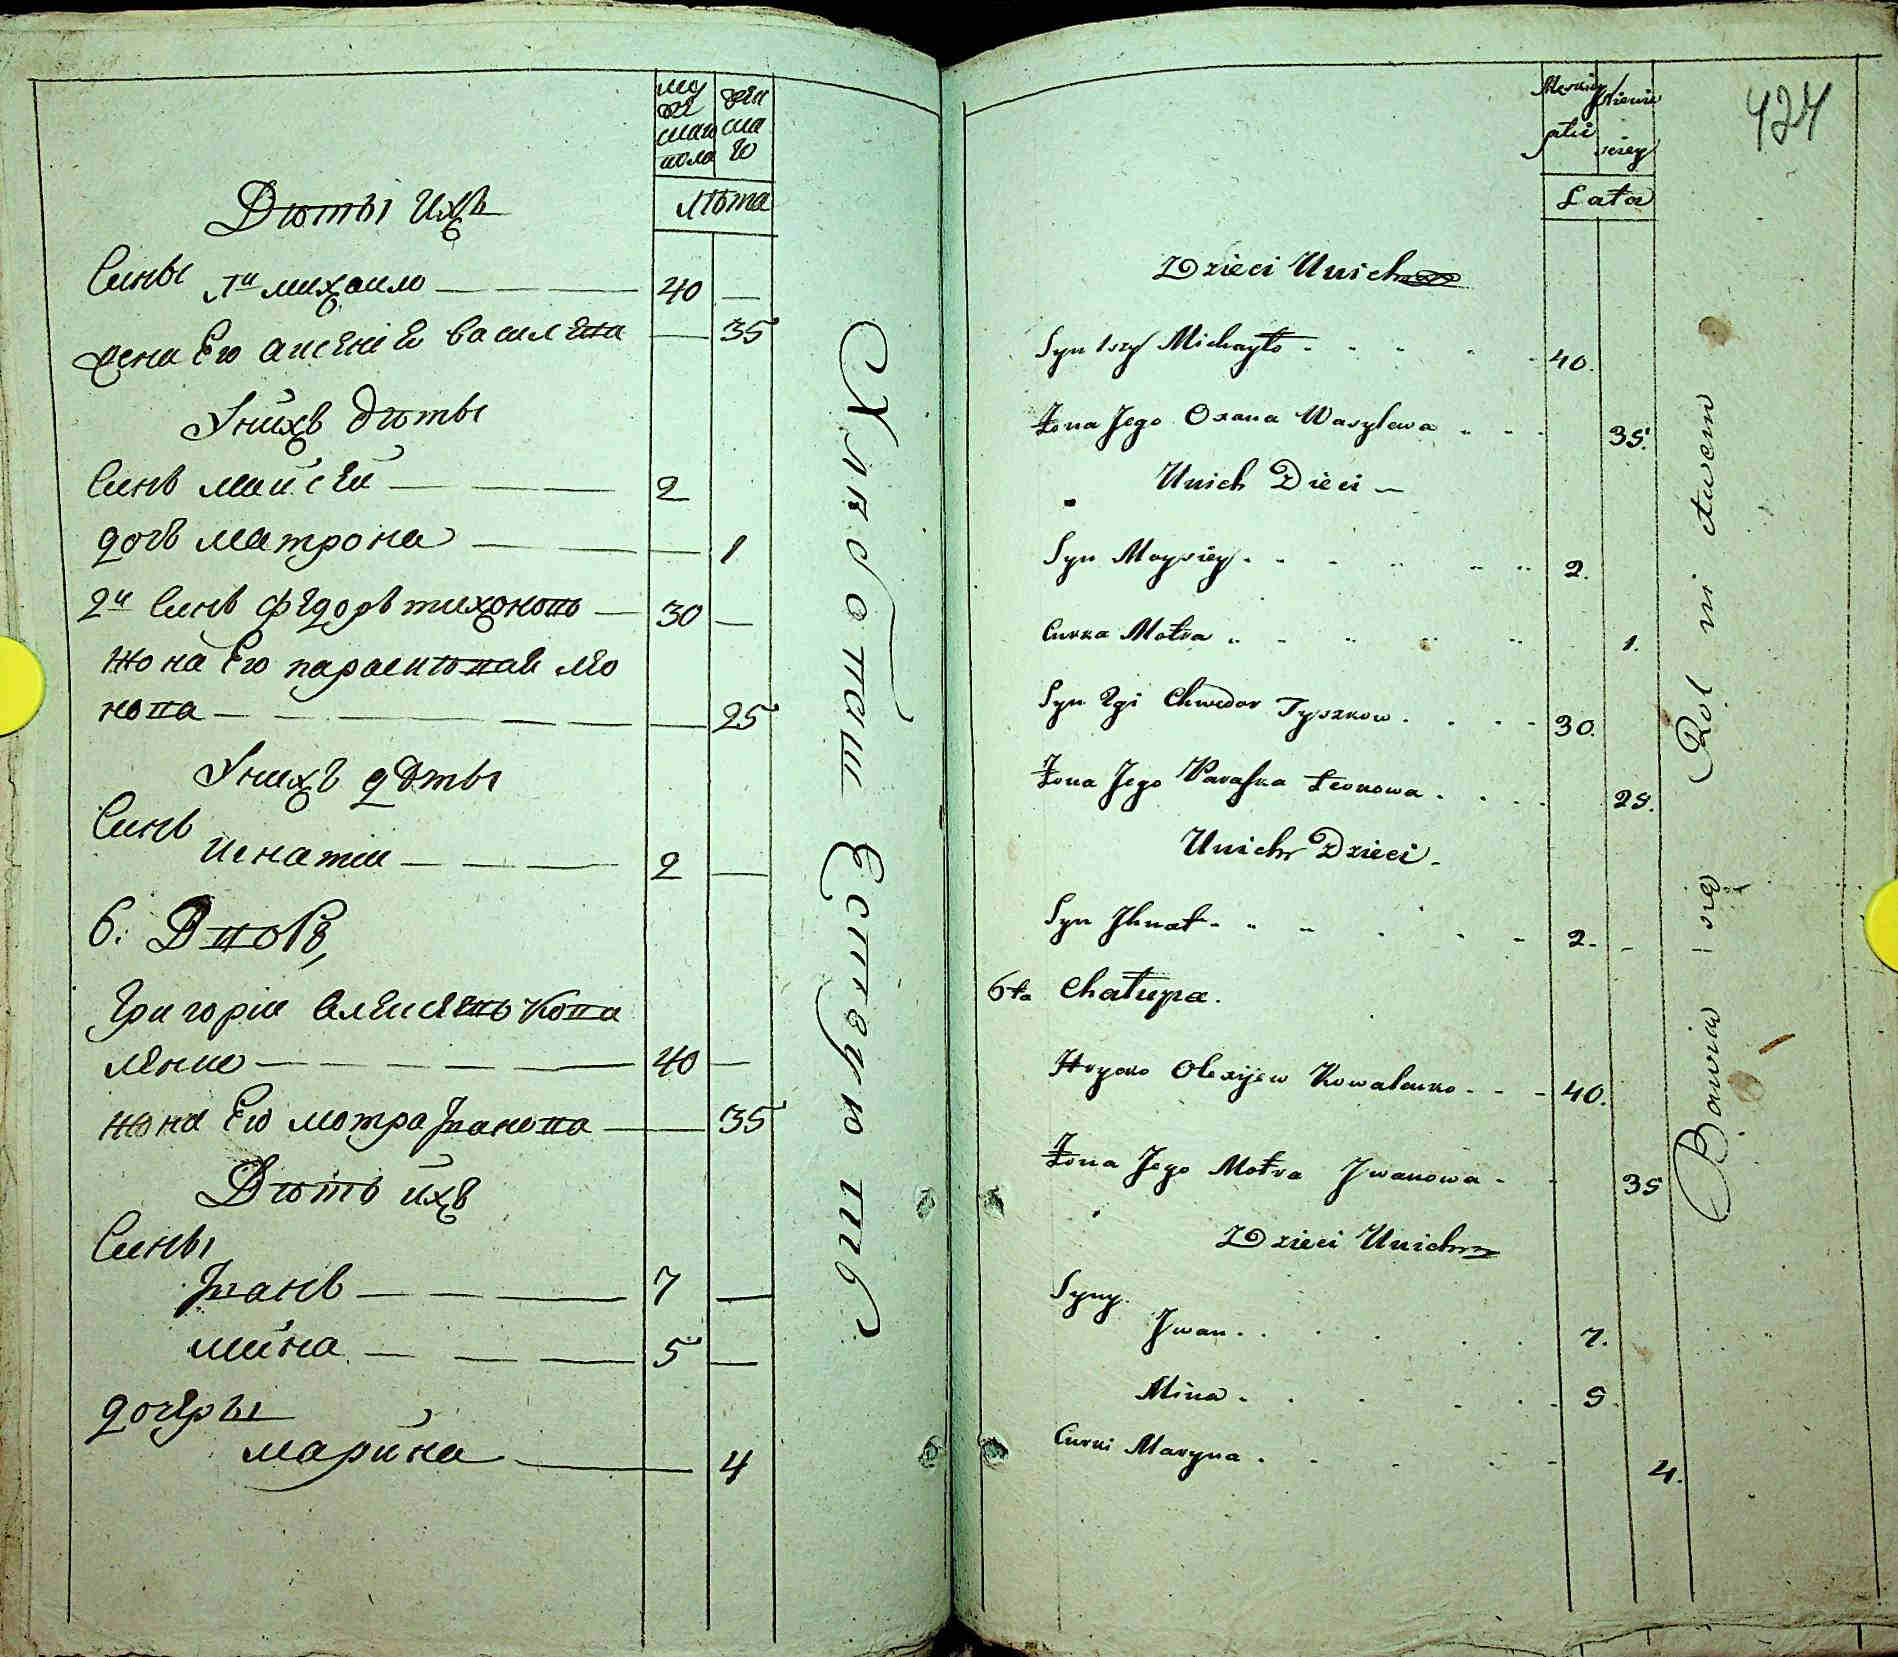 му
же
скаго
пола
жен
ска
го
лѣта
Дѣты ихъ
Сины 1й михаило 40
жена Его аксениѣ василева 35
Унихъ дѣты
Синъ мойсей 2
дочъ матрона 1
2й Синъ федоръ тихоновъ 30
жона Его
нова 25
Унихъ дѣты
Синъ
игнатій 2
6. Дворъ
григорій алексѣевъ кова
ленко 40
жона Его мотра Ивановa 35
Дѣтъ ихъ
Сины
Иванъ 7
мина 5
дочеры
марина 4
Хлѣбопаш Ествуютъ
424
Męskiey
płci
Niewie
sciey
Lata
Dzieci Unich
Syn 1szy Michayło 40.
Żona Jego Oxana Wasylowa 35.
Unich Dieci
Syn Moysiey 2.
Curka Motra 1.
Syn 2gi Chwedor Tyszkow 30.
Żona Jego Paraska Leonowa 25.
Unich Dzieci
Syn Jhnat 2.
6ta Chatupa.
Hryćko Olexijew Kowalenko 40.
Żona Jego Motra Jwanowa 35
Dzieci Unich
Syny.
Jwan 7.
Mina 5.
Curki Maryna 4.
Bawiu się Rol ni ctwem